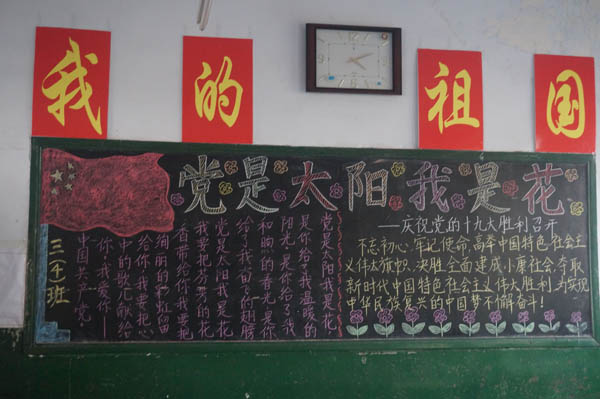 我的祖国
党是太阳我是花
——庆祝党的十九大胜利召开
不忘初心,牢记使命,高举中国特色社会主
义伟大旗帜、决胜全面建成小康社会,夺取
新时代中国特色社会主义伟大胜利,为实现
中华民族复兴的中国梦不懈奋斗!
党是太阳我是花
是你给了我温暖的
阳光,是你给了我
和煦的春光是你
给了我奋飞的翅膀
党是太阳我是花
我要把芬芳的花
香带给你我要把
绚丽的彩虹留
给你,我要把心
中的歌儿献给
你,我爱你——
中国共产党
三(4)班